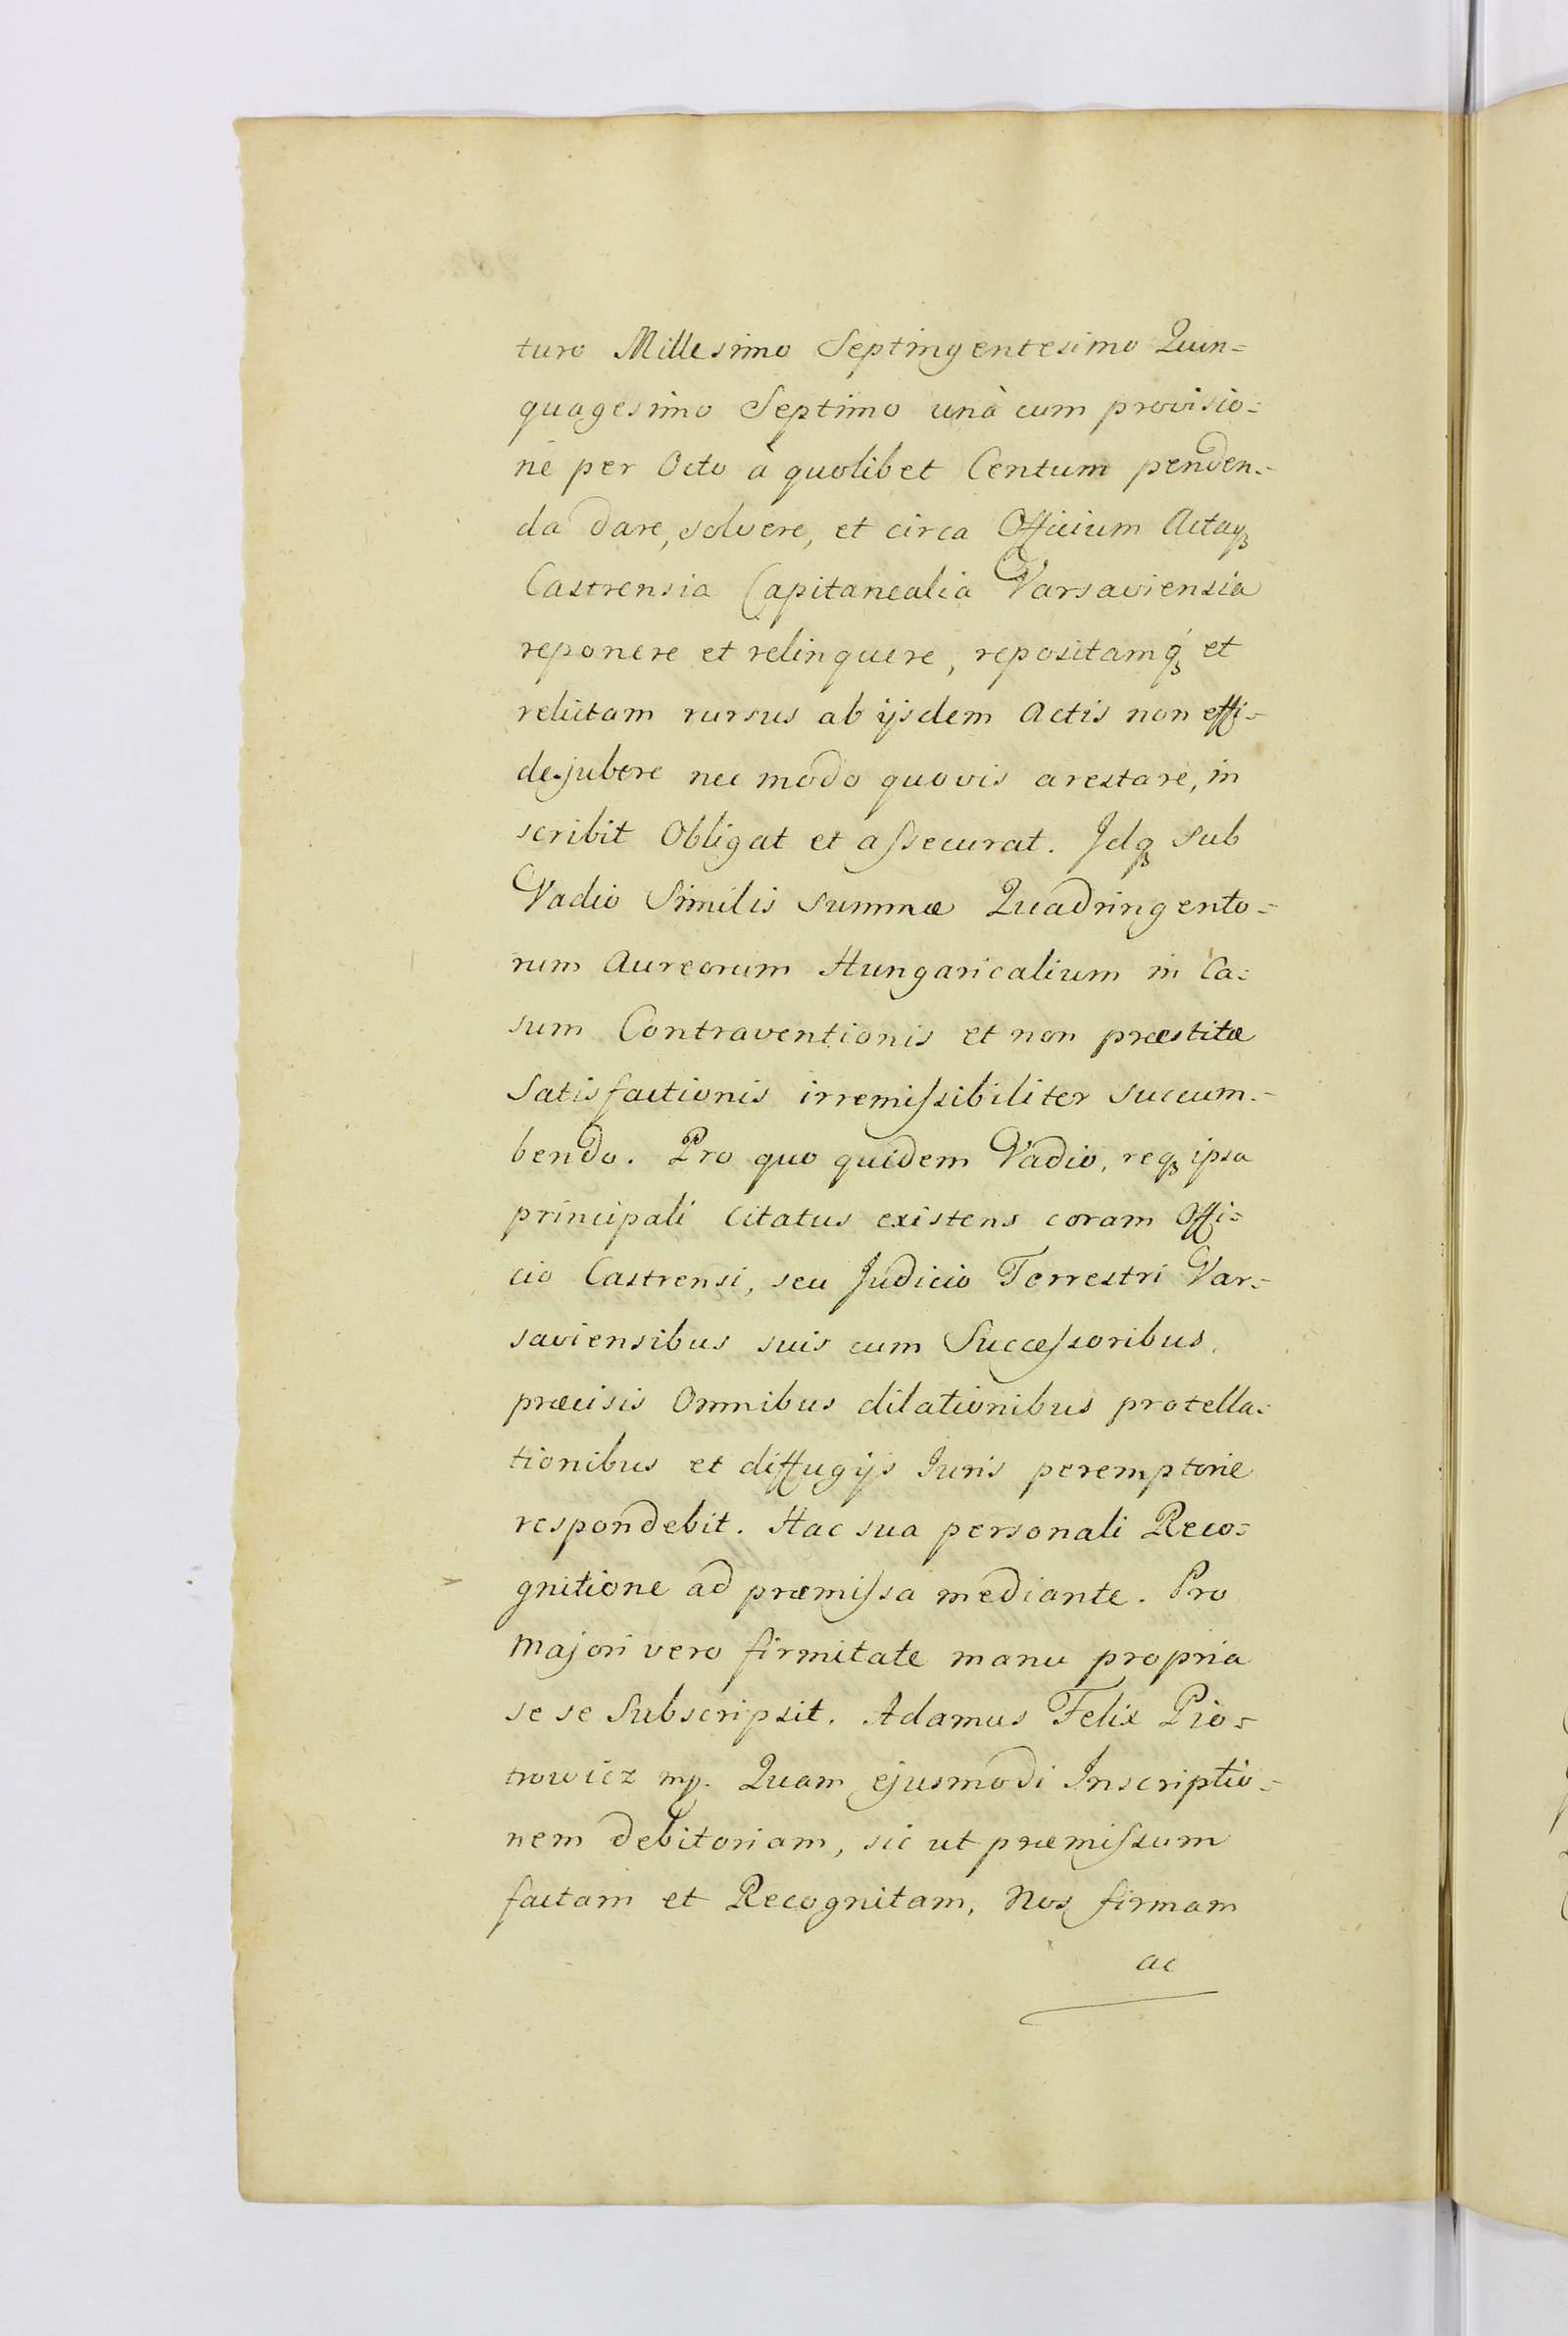 turo Millesimo Septingentesimo Quin=
quagesimo Septimo unà cum provisio=
ne per Octo à quolibet Centum penden=
da dare, solvere, et circa Officium Actaqꝫ
Castrensia Capitanealia Varsaviensia
reponere et relinquere, repositamq́ꝫ et
relictam rursus ab ijsdem Actis non effi=
dejubere nec modo quovis arestare, in
scribit Obligat et aſsecurat. Idqꝫ sub
Vadio Similis summæ Quadringento=
rum Aureorum Hungaricalium in Ca=
sum Contraventionis et non præstitæ
Satisfactionis irremiſsibiliter succum=
bendo. Pro quo quidem Vadio, reqꝫ ipsa
principali citatus existens coram Offi=
cio Castrensi, seu Judicio Terrestri Var=
saviensibus suis cum Succeſsoribus,
præcisis Omnibus dilationibus protella=
tionibus et diffugijs Iuris peremptorie
respondebit. Hac sua personali Reco=
gnitione ad præmiſsa mediante. Pro
Majori vero firmitate manu propria
se se Subscripsit. Adamus Felix Pio=
trowicz mp. Quam ejusmodi Inscriptio=
nem debitoriam, sic ut præmiſsum
factam et Recognitam, Nos firmam
ac